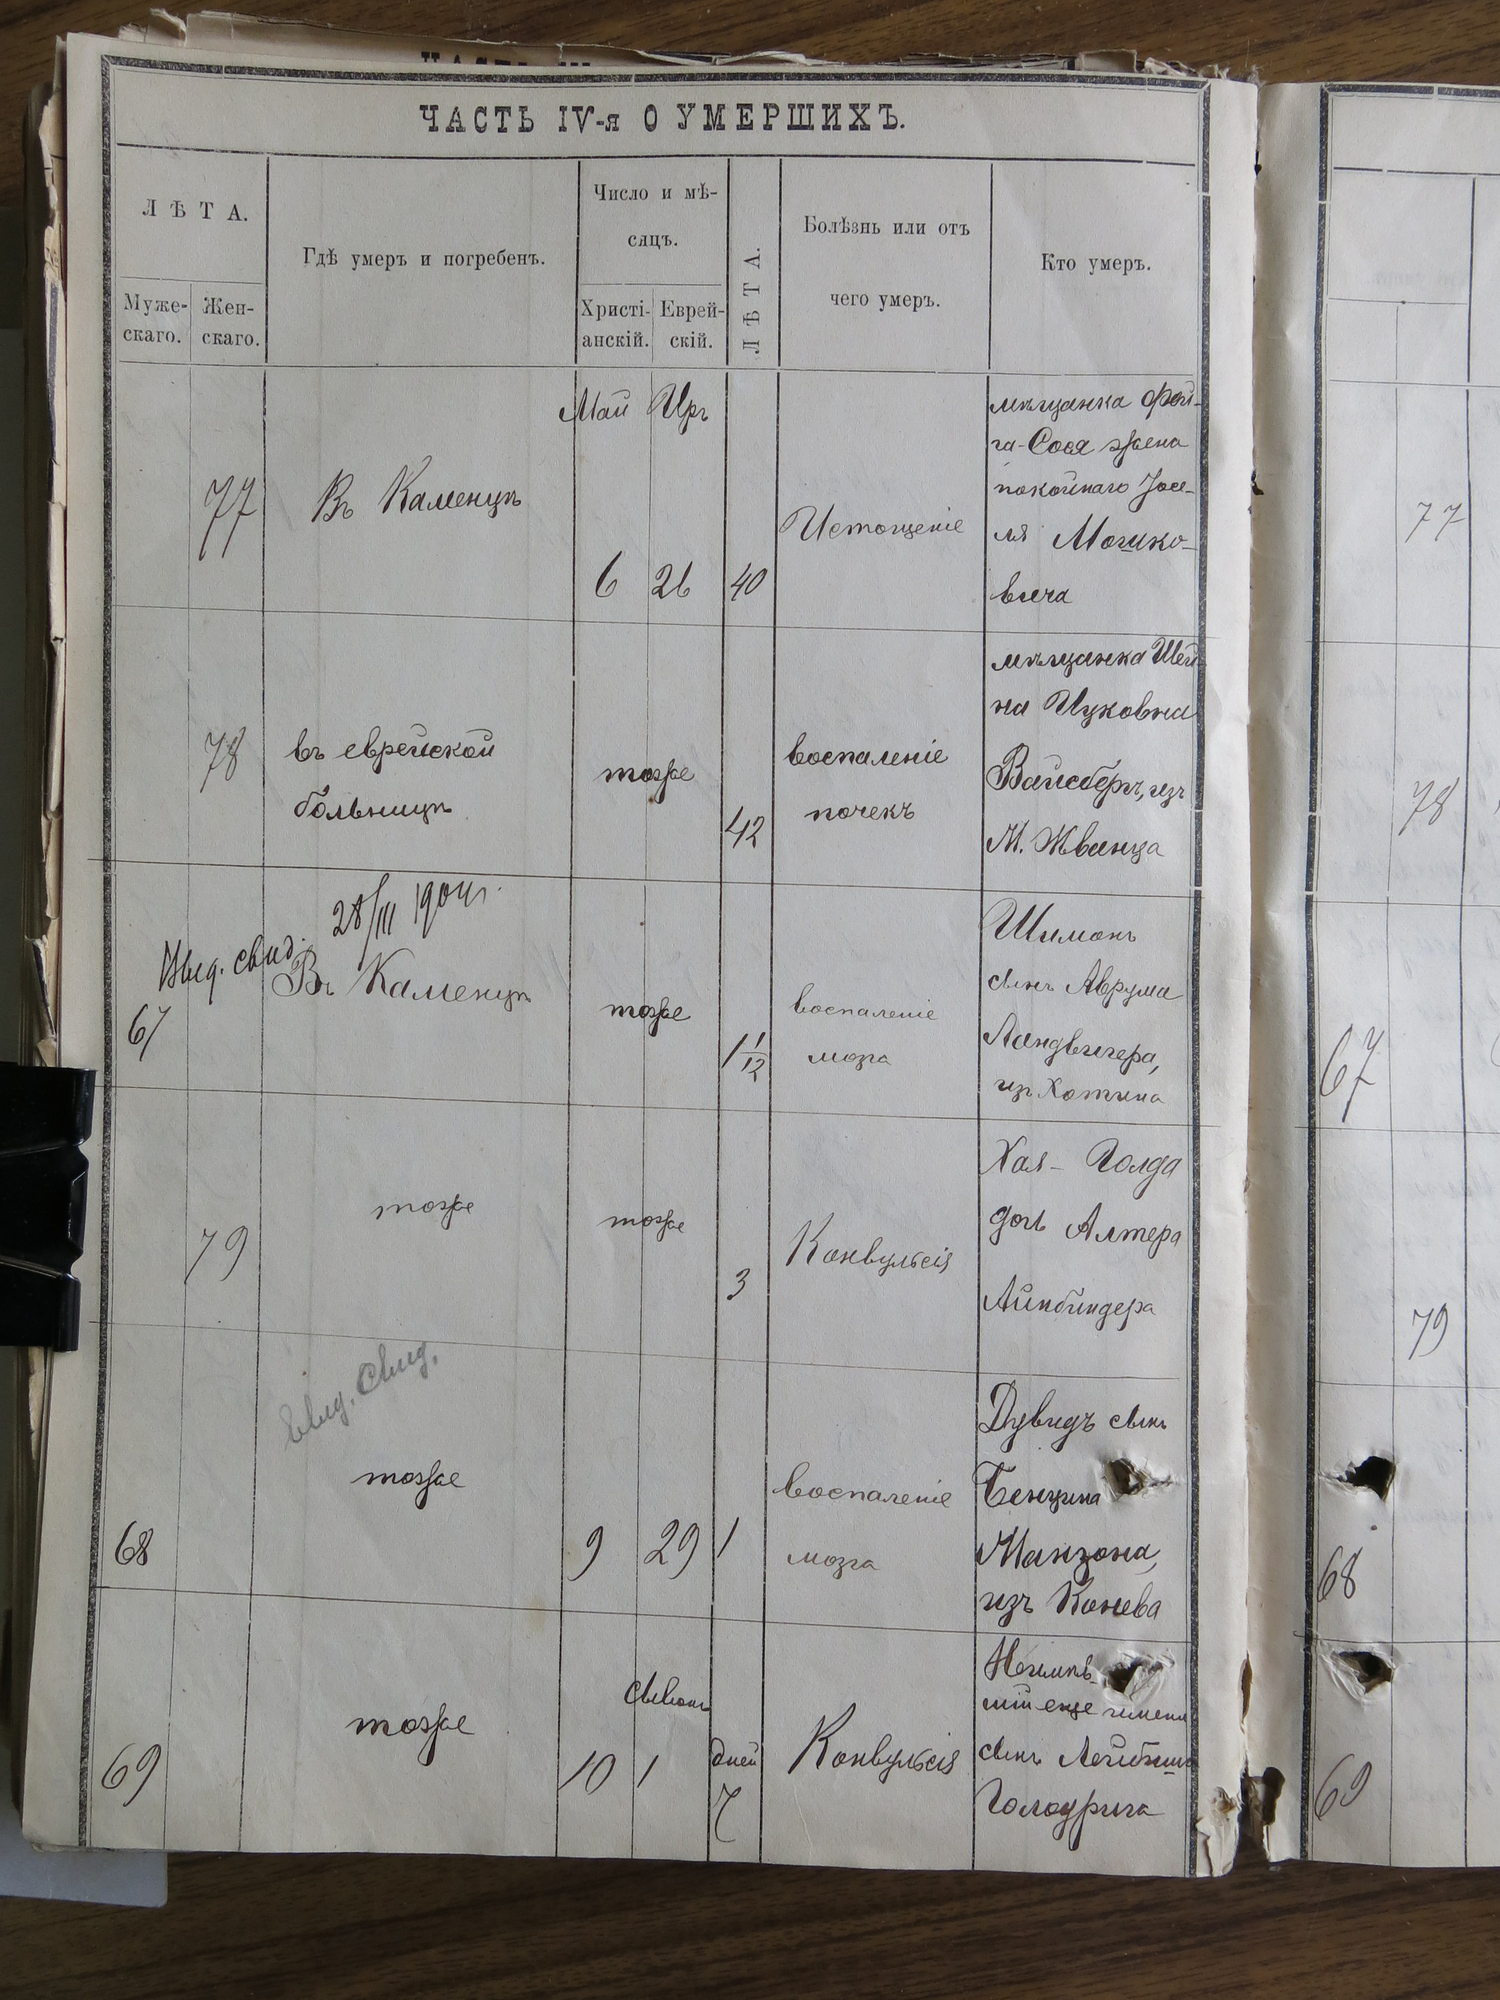 ЧАСТЬ IV-я О УМЕРШИХЪ.
ЛѢТА.
Муже-
скаго.
Жен-
скаго.
Гдѣ умеръ и погребенъ.
Число и мѣ-
сяцъ.
Христі-
анскій.
Еврей-
скій.
ЛѢТА.
Болѣзнь или отъ
чего умеръ.
Кто умеръ.
77
Въ Каменцѣ
Май Ияръ
6 26 40
Истощеніе
мѣщанка Фей-
га-Сося жена
покойнаго Іосе-
ля Мошко-
вича
77
78
въ еврейской
больницѣ
тоже
42
воспаленіе
почекъ
мѣщанка Шей
на Ицковна
Вайсбергъ, изъ
М. Жванца
78
Выд. свид.
28/III 1904 г.
67
Въ Каменцѣ
тоже
1 1/12
воспаленіе
мозга
Шимонъ
сынъ Аврума
Ландвигера,
изъ Хотина
67
79
тоже
тоже
3
Конвульсія
Хая- Голда
дочь Алтера
Айнбиндера
79
Выд. свид.
68
тоже
9 29 1
воспаленіе
мозга
Дувидъ сынъ
Бенциона
Манзона,
изъ Конева
68
69
тоже
Сивонъ
10 1
дней
7
Конвульсія
Неимѣв-
шій еще имени
сынъ
Голодрига
69